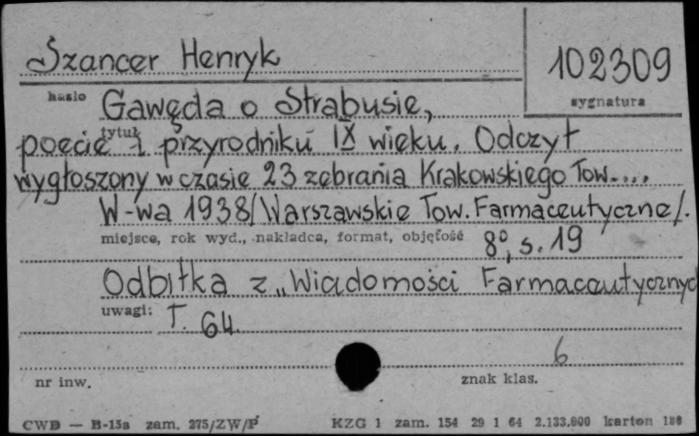 Szancer Henryk
102309
hasło
sygnatura
Gawęda o Strabusie,
tytuł
poecie i przyrodniku IX wieku. Odczyt
wygłoszony w czasie 23 zebrania Krakowskiego Tow....
W-wa 1938/Warszawskie Tow. Farmaceutyczne/.
miejsce, rok wyd., nakładca, format, objętość
8°, s. 19
Odbitka z „Wiadomości Farmaceutycznyc
uwagi:
T. 64
6
nr inw.
znak klas.
CWD — B-15a zam. 275/ZW/P
KZG 1 zam. 154 29 1 64 2.133.600 karton